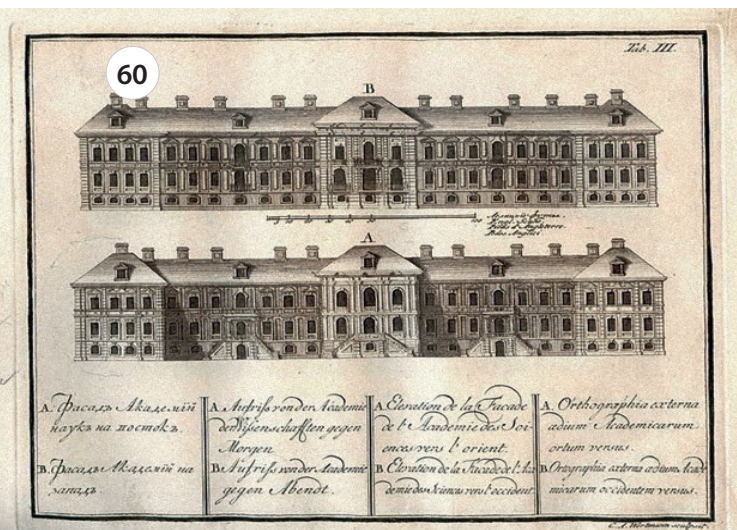 60
Tab. III.
B
A
A. Фасадъ Академіи
наукъ на востокъ.
B. Фасадъ Академіи на
западъ.
A. Aufriss von der Academie
der Wissenschafften gegen
Morgen
B. Aufriss von der Academie
gegen Abendt.
A. Elevation de la Facade
de l'Academie des Sci-
ences vers l'orient.
B. Elevation de la Facade de l'Aca
demie des Sciences vers l'occident.
A. Orthographia externa
ædium Academicarum
ortum versus.
B. Ortographia externa ædium Acade
micarum occidentem versus.
C. A. Wortmann sculpsit.